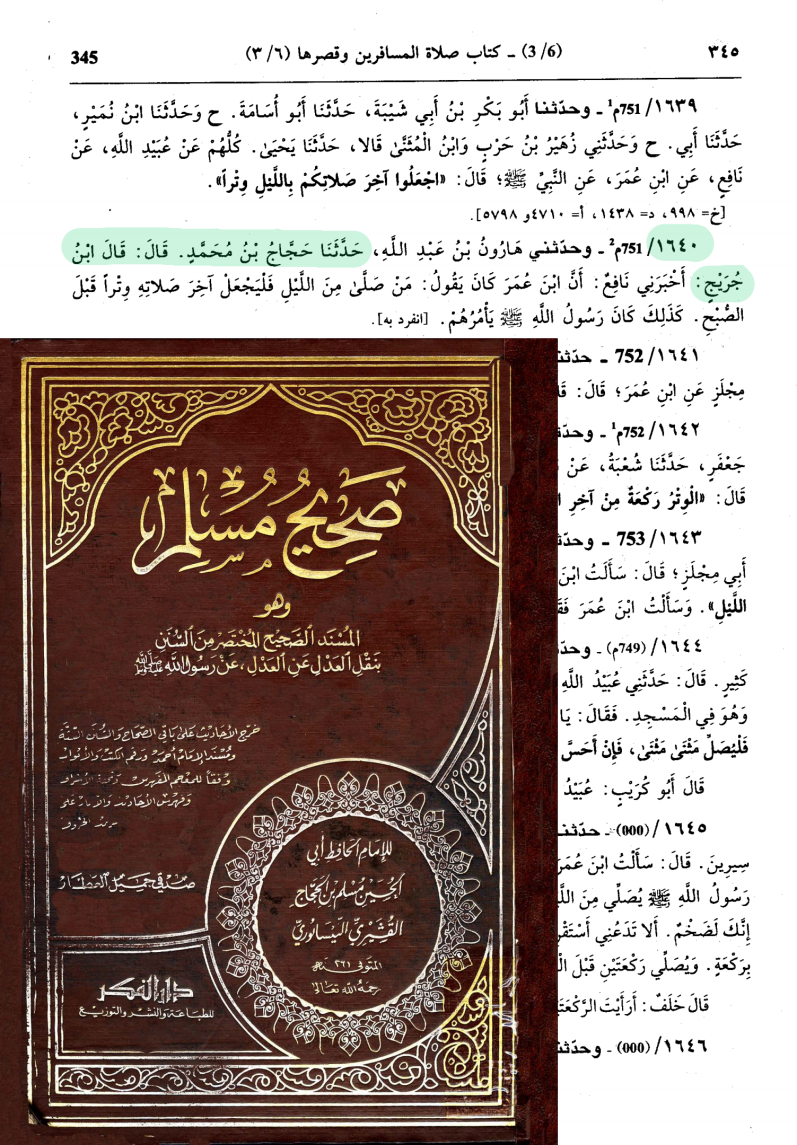 345 (3/6) ـ كتاب صلاة المسافرين وقصرها (٣/٦) ٣٤٥
١٦٣٩/751م¹ ـ وحدّثنا أَبُو بَكْرِ بْنُ أَبِي شَيْبَةَ، حَدَّثَنَا أَبُو أُسَامَةَ. ح وَحَدَّثَنَا ابْنُ نُمَيْرٍ،
حَدَّثَنَا أَبِي. ح وَحَدَّثَنِي زُهَيْرُ بْنُ حَرْبٍ وَابْنُ الْمُثَنَّىٰ قَالا، حَدَّثَنَا يَحْيَىٰ. كُلُّهُمْ عَنْ عُبَيْدِ اللَّهِ، عَنْ
نَافِعٍ، عَنِ ابْنِ عُمَرَ، عَنِ النَّبِيِّ ﷺ؛ قَالَ: «اجْعَلُوا آخِرَ صَلاتِكُمْ بِاللَّيْلِ وِتْراً».
[خ= ٩٩٨، د= ١٤٣٨، أ= ٤٧١٠و ٥٧٩٨].
١٦٤٠/751م² ـ وحدّثني هَارُونُ بْنُ عَبْدِ اللَّهِ، حَدَّثَنَا حَجَّاجُ بْنُ مُحَمَّدٍ. قَالَ: قَالَ ابْنُ
جُرَيْجٍ: أَخْبَرَنِي نَافِعٌ: أَنَّ ابْنَ عُمَرَ كَانَ يَقُولُ: مَنْ صَلَّىٰ مِنَ اللَّيْلِ فَلْيَجْعَلْ آخِرَ صَلاتِهِ وِتْراً قَبْلَ
الصُّبْحِ. كَذَلِكَ كَانَ رَسُولُ اللَّهِ ﷺ يَأْمُرُهُمْ. [انفرد به].
١٦٤١/752 ـ حدّثنا
مِجْلَزٍ عَنِ ابْنِ عُمَرَ؛ قَالَ:
١٦٤٢/752م¹ ـ وحدّ
جَعْفَرٍ، حَدَّثَنَا شُعْبَةُ، عَنْ
قَالَ: «الْوِتْرُ رَكْعَةٌ مِنْ آخِرِ
١٦٤٣/753 ـ وحدّ
أَبِي مِجْلَزٍ؛ قَالَ: سَأَلْتُ ابْنَ
اللَّيْلِ». وَسَأَلْتُ ابْنَ عُمَرَ
١٦٤٤/(749م) ـ وحدّ
كَثِيرٍ. قَالَ: حَدَّثَنِي عُبَيْدُ اللَّهِ
وَهُوَ فِي الْمَسْجِدِ. فَقَالَ: يَا
فَلْيُصَلِّ مَثْنَىٰ مَثْنَىٰ، فَإِنْ أَحَسَّ
قَالَ أَبُو كُرَيْبٍ: عُبَيْدُ
١٦٤٥/(000) ـ حدّثنا
سِيرِينَ. قَالَ: سَأَلْتُ ابْنَ عُمَرَ
رَسُولُ اللَّهِ ﷺ يُصَلِّي مِنَ
إِنَّكَ لَضَخْمٌ. أَلا تَدَعُنِي
بِرَكْعَةٍ. وَيُصَلِّي رَكْعَتَيْنِ قَبْلَ
قَالَ خَلَفٌ: أَرَأَيْتَ
١٦٤٦/(000) ـ وحدّثنا
صَحِيحُ مُسْلِم
وهو
المُسْنَد الصَّحِيح المُخْتَصَر مِنَ السُّنَنِ
بِنَقْلِ العَدْلِ عَنِ العَدْلِ، عَنْ رَسُولِ اللهِ ﷺ
خرج الأحاديث على باقي الصحاح والسنن الستة
ومسند الإمام أحمد ورقم الكتب والأبواب
وفقاً للمعجم المفهرس
وفهرس الأحاديث
صدقي جميل العطار
للإمام الحافظ أبي
الحسين مسلم بن الحجاج
القشيري النيسابوري
المتوفى سنة ٢٦١ هـ
رحمه الله تعالى
دار الفكر
للطباعة والنشر والتوزيع